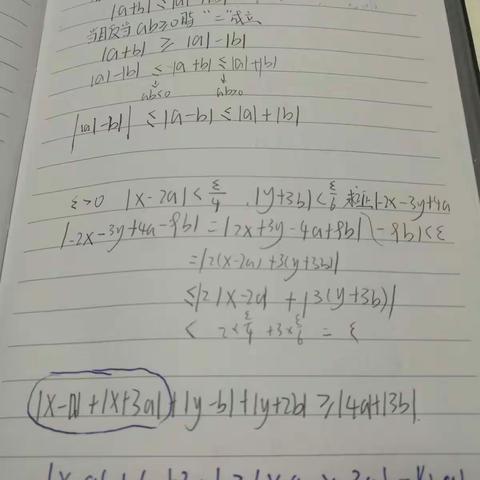 |a+b| ≤ |a|
当且仅当ab≥0时 "="成立
|a+b| ≥ |a|-|b|
|a|-|b| ≤ |a+b| ≤ |a|+|b|
ab≤0 ab≥0
||a|-|b|| ≤ |a-b| ≤ |a|+|b|
ε>0 |x-2a|<ε/4 , |y+3b|<ε/6 求证|-2x-3y+4a
|-2x-3y+4a-9b|=|2x+3y-4a+9b| -9b|<ε
=|2(x-2a)+3(y+3b)|
≤|2|x-2a| + |3(y+3b)|
< 2×ε/4 +3×ε/6 = ε
|x-a|+|x+3a|+|y-b|+|y+2b| ≥|4a|+|3b|